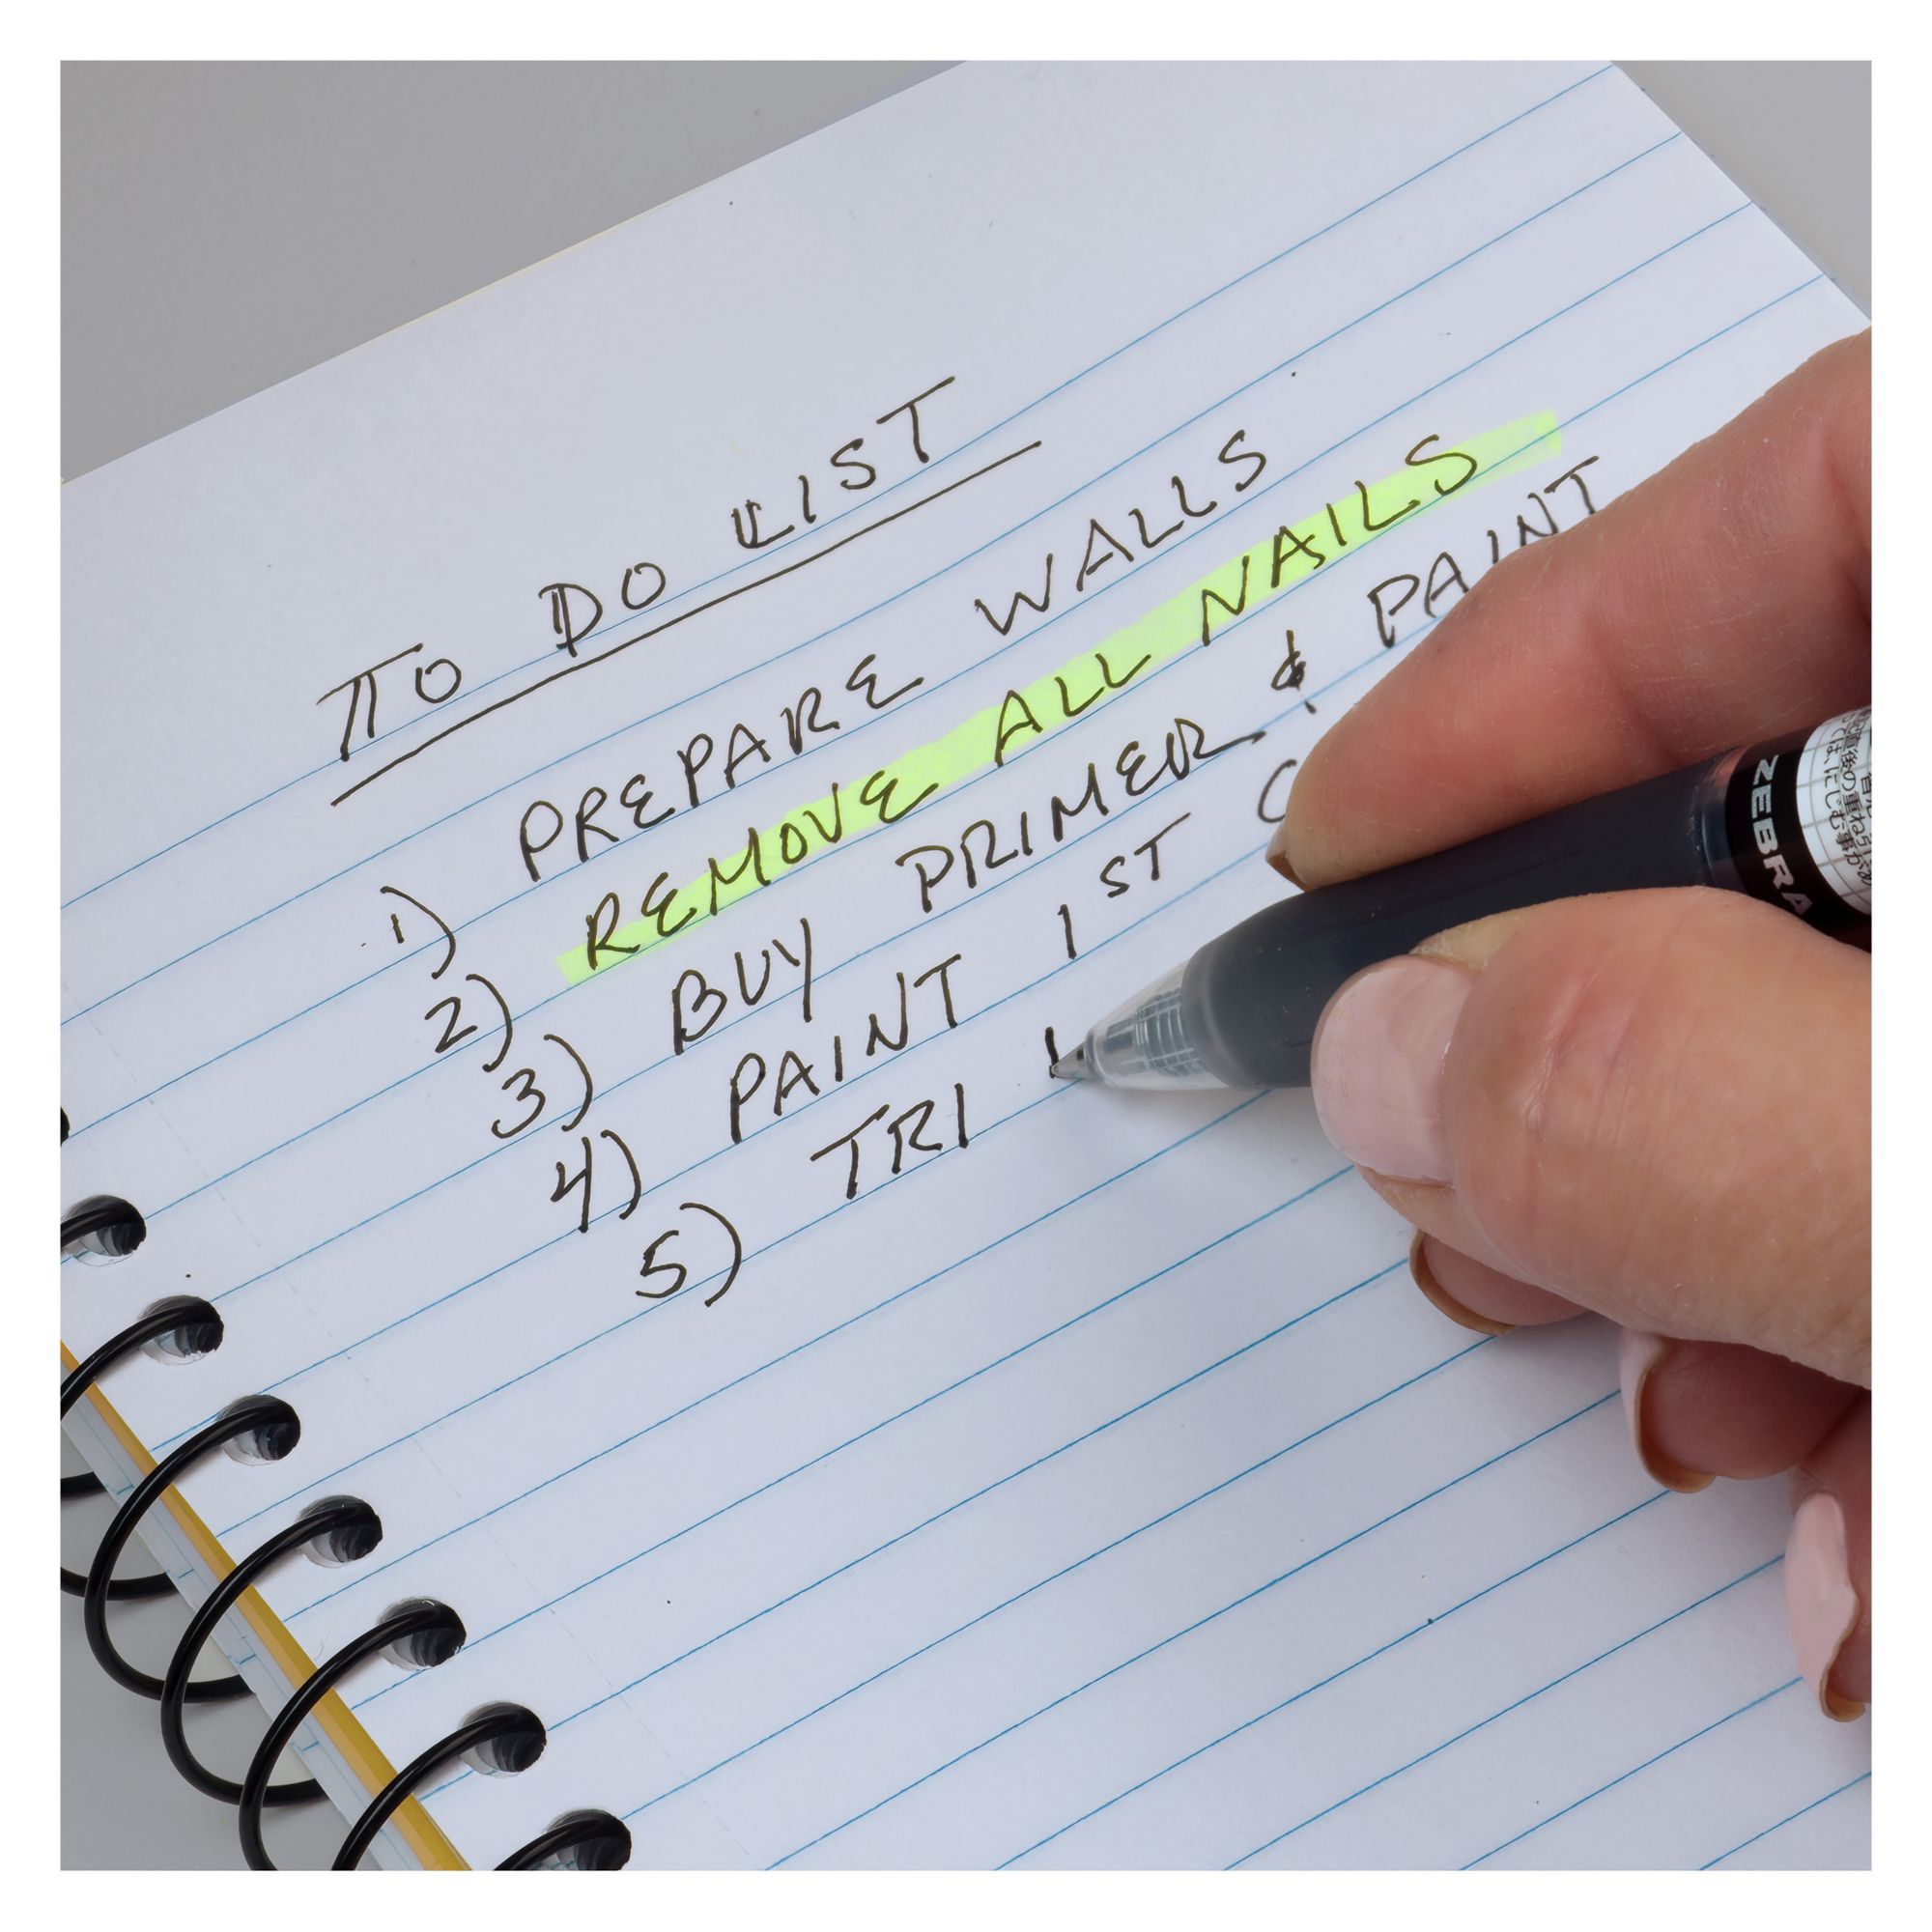 TO DO LIST
1) PREPARE WALLS
2) REMOVE ALL NAILS
3) BUY PRIMER & PAINT
4) PAINT 1ST C
5) TRI
ZEBRA